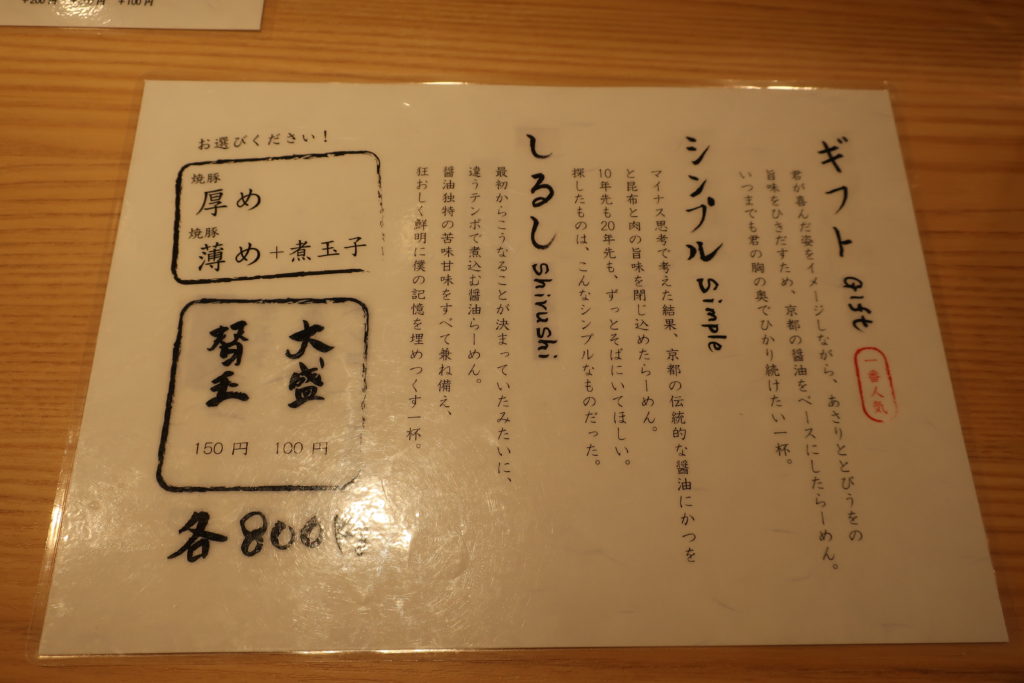 +200円 +100円
ギフト Gift
一番人気
君が喜んだ姿をイメージしながら、あさりととびうをの
旨味をひきだすため、京都の醤油をベースにしたらーめん。
いつまでも君の胸の奥でひかり続けたい一杯。
シンプル Simple
マイナス思考で考えた結果、京都の伝統的な醤油にかつを
と昆布と肉の旨味を閉じ込めたらーめん。
10年先も20年先も、ずっとそばにいてほしい。
探したものは、こんなシンプルなものだった。
しるし Shirushi
最初からこうなることが決まっていたみたいに、
違うテンポで煮込む醤油らーめん。
醤油独特の苦味甘味をすべて兼ね備え、
狂おしく鮮明に僕の記憶を埋めつくす一杯。
お選びください!
焼豚
厚め
焼豚
薄め+煮玉子
大盛 100円
替玉 150円
各800円